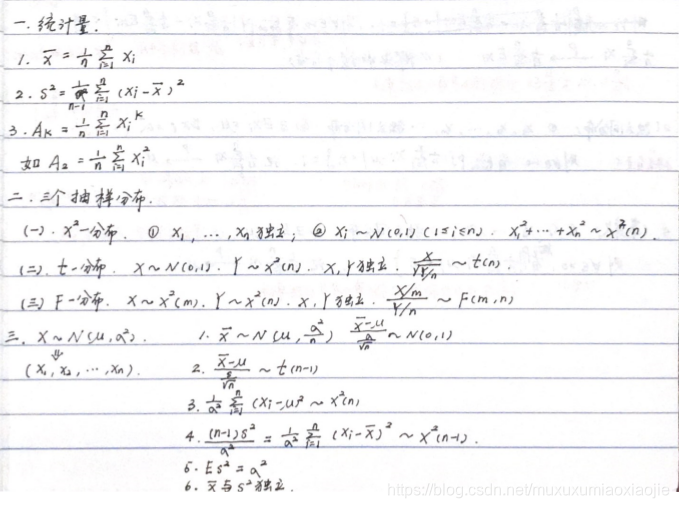 一. 统计量.
1. x̄ = 1/n Σ_{i=1}^{n} xᵢ
2. S² = 1/(n-1) Σ_{i=1}^{n} (xᵢ - x̄)²
3. A_K = 1/n Σ_{i=1}^{n} xᵢ^K
如 A₂ = 1/n Σ_{i=1}^{n} xᵢ²
二. 三个抽样分布.
(一). x²-分布. ① x₁, …, xₙ 独立; ② xᵢ ~ N(0,1) (1≤i≤n). x₁²+…+xₙ² ~ x²(n).
(二). t-分布. X ~ N(0,1). Y ~ x²(n). X, Y独立. X/√(Y/n) ~ t(n).
(三) F-分布. X ~ x²(m). Y ~ x²(n). X, Y独立. (X/m)/(Y/n) ~ F(m,n)
三. X ~ N(μ,a²). 1. x̄ ~ N(μ, a²/n) (x̄-μ)/(a/√n) ~ N(0,1)
⇓
(x₁, x₂, …, xₙ). 2. (x̄-μ)/(s/√n) ~ t(n-1)
3. 1/a² Σ_{i=1}^{n} (xᵢ-μ)² ~ x²(n)
4. (n-1)S²/a² = 1/a² Σ_{i=1}^{n} (xᵢ - x̄)² ~ x²(n-1).
5. ES² = a²
6. x̄ 与 S² 独立.
https://blog.csdn.net/muxuxumiaoxiaojie